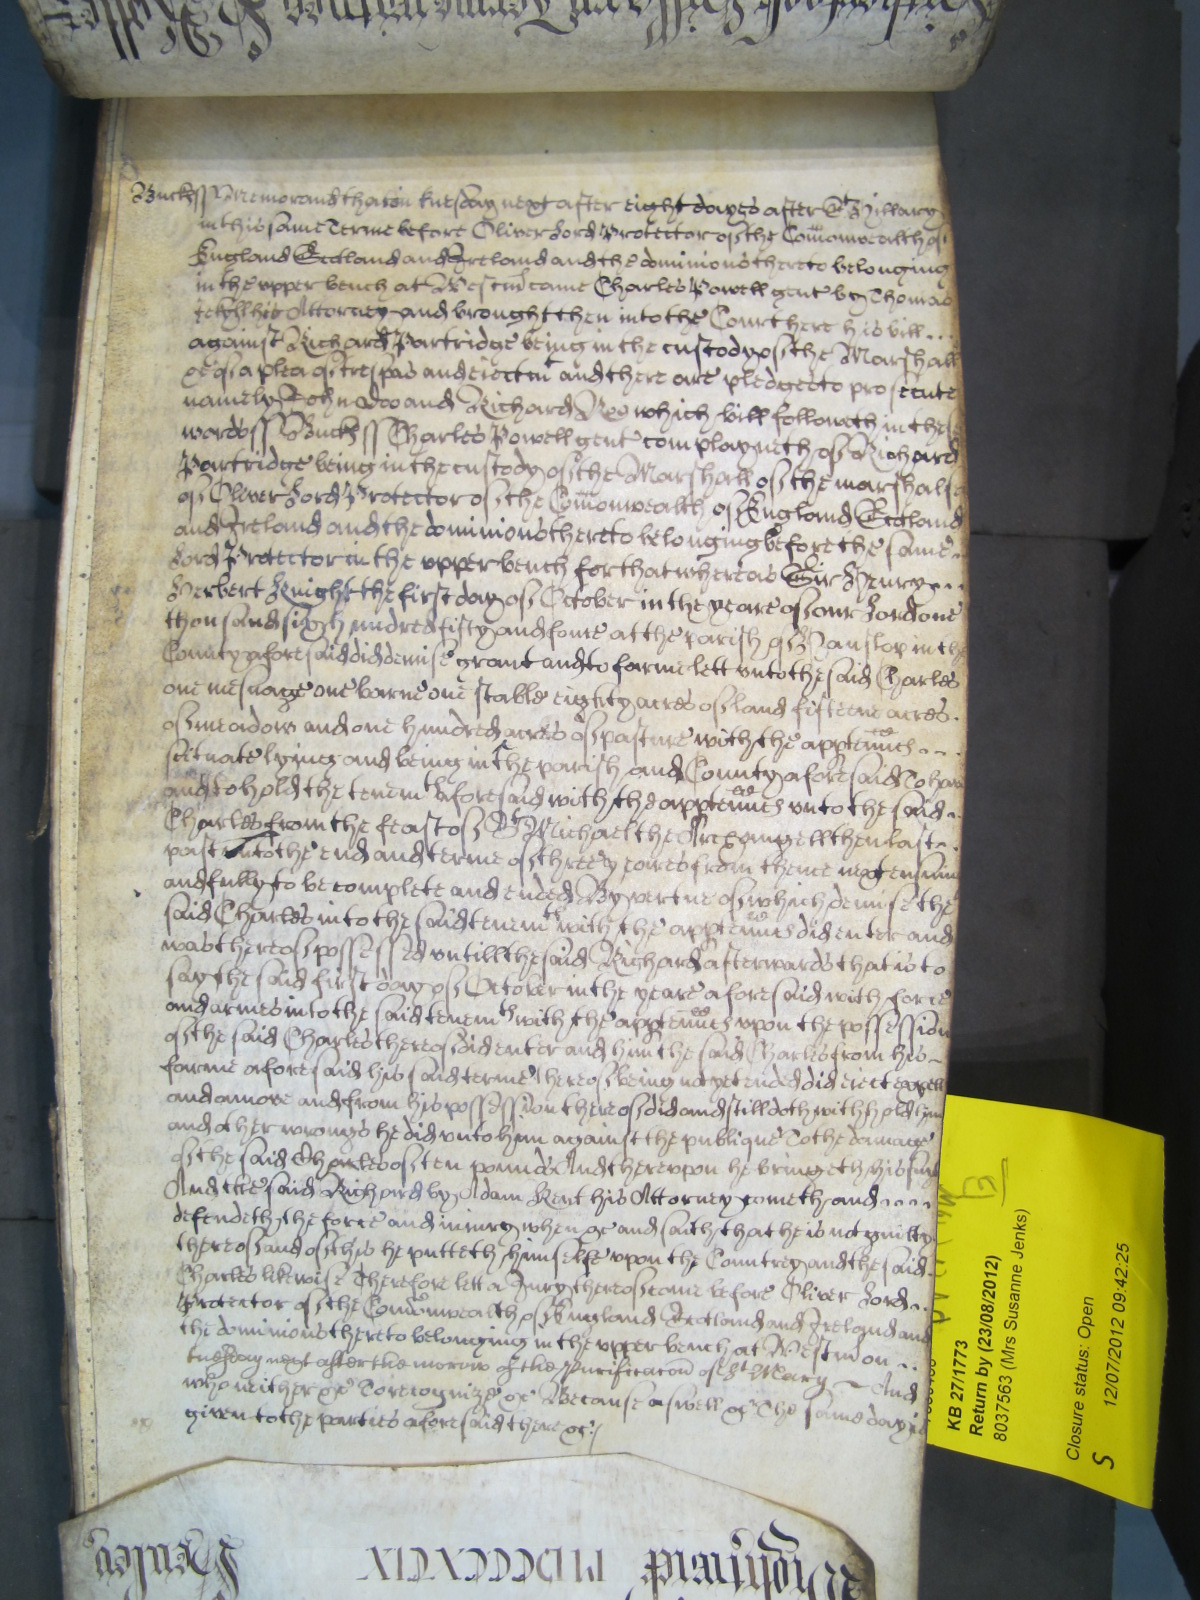 Bucks ss Memorand that on tuesday next after eight dayes after St Hillary
in this same Terme before Oliver Lord Protector of the Comonwealth of
England Scotland and Ireland and the dominions thereto belonging
in the upper bench at Westmr came Charles Powell gent by Thomas
his Attorney and brought then into the Court here his bill
against Richard Partridge being in the custody of the Marshall
&c of a plea of trespas and eiectmt and there are pledges to prosecute
namely John Doo and Richard Roo which bill followeth in these
words ss Bucks ss Charles Powell gent complayneth of Richard
Partridge being in the custody of the Marshall of the marshalsea
of Oliver Lord Protector of the Comonwealth of England Scotland
and Ireland and the dominions thereto belonging before the same
Lord Protector in the upper bench for that whereas Sir Henry
Herbert Knight the first day of October in the yeare of our Lord one
thousand six hundred fifty and foure at the parish of Hanslop in the
County aforesaid did demise grant and to farme lett unto the said Charles
one mesuage one barne one stable eighty acres of land fifteene acres
of meadow and one hundred acres of pasture with the apptennces
scituate lying and being in the parish and County aforesaid To have
and to hold the tenemts aforesaid with the apptennces unto the said
Charles from the feast of St Michael the Archangell then last
past unto the end and terme of three yeares from thence next ensuing
and fully to be complete and ended By vertue of which demise the
said Charles into the said tenemts with the apptennces did enter and
was thereof possessed untill the said Richard afterwards that is to
say the said first day of October in the yeare aforesaid with force
and armes into the said tenemts with the apptennces upon the possession
of the said Charles thereof did enter and him the said Charles from his
farme aforesaid his said terme thereof being not yet ended did eiect expell
and amove and from his possession thereof did and still doth withhold him
and other wrongs he did unto him against the publique To the damage
of the said Charles of ten pounds And thereupon he bringeth his suit
And the said Richard by Adam Kent his Attorney cometh and
defendeth the force and iniury when &c and saith that he is not guilty
thereof and of this he putteth himselfe upon the Countrey and the said
Charles likewise Therefore lett a Jury thereof come before Oliver Lord
Protector of the Comonwealth of England Scotland and Ireland and
the dominions thereto belonging in the upper bench at Westm on
tuesday next after the morrow of the Purificacon of St Mary And
who neither &c To recognize &c Because aswell &c The same day is
given to the parties aforesaid there &c
KB 27/1773
Return by (23/08/2012)
8037563 (Mrs Susanne Jenks)
Closure status: Open
12/07/2012 09:42:25
S